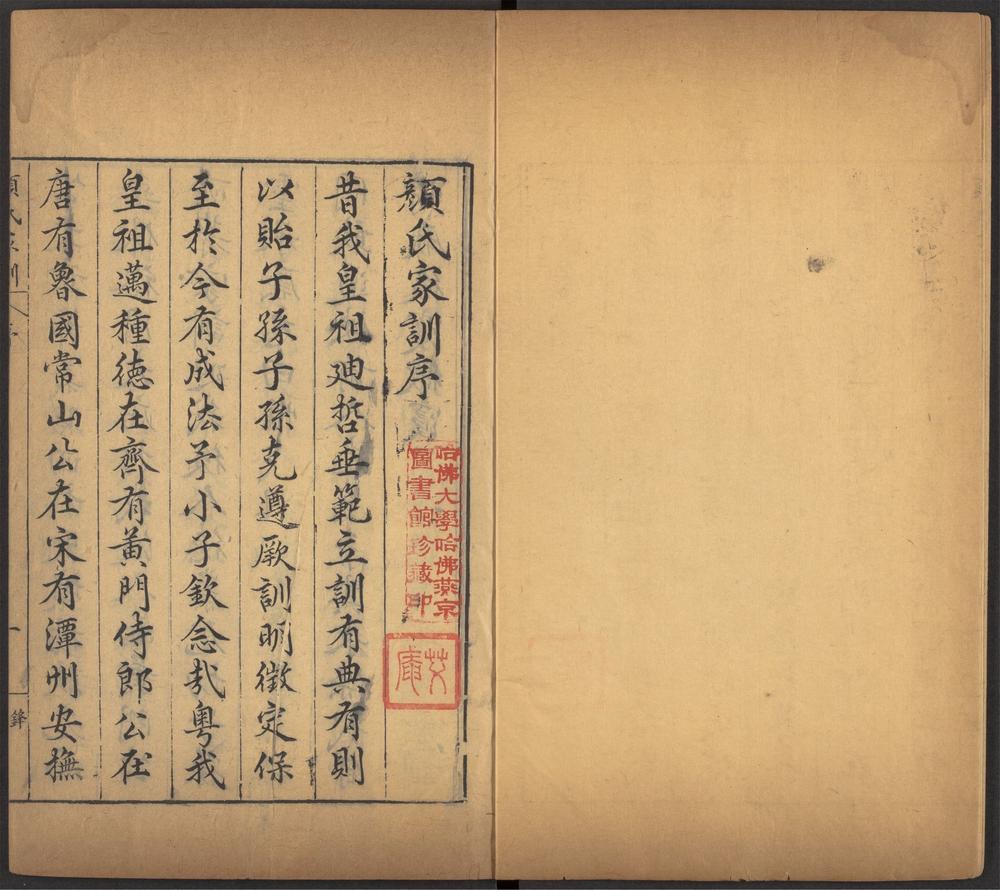 顏氏家訓序
哈佛大學哈佛燕京
圖書館珍藏印
昔我皇祖廸哲垂範立訓有典有則
以貽子孫子孫克遵厥訓明徵定保
至於今有成法予小子欽念㦲粤我
皇祖邁種德在齊有黃門侍郎公在
唐有魯國常山公在宋有潭州安撫